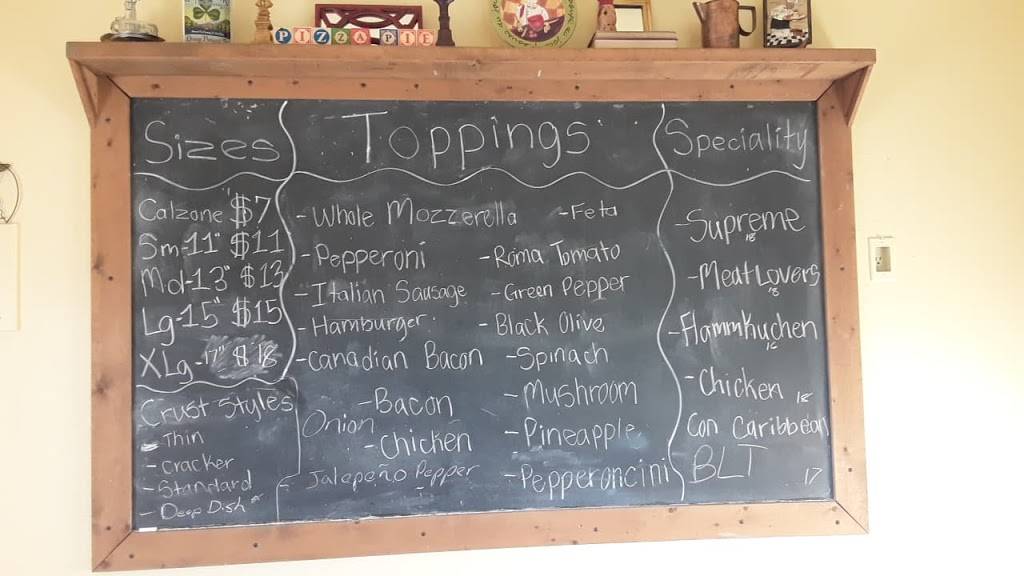 PIZZA PIE
Sizes
Calzone $7
Sm-11" $11
Md-13" $13
Lg-15" $15
XLg-17" $18
Crust Styles
- Thin
- Cracker
- Standard
- Deep Dish*
Toppings
- Whole Mozzerella
- Feta
- Pepperoni
- Roma Tomato
- Italian Sausage
- Green Pepper
- Hamburger
- Black Olive
- Canadian Bacon
- Spinach
- Bacon
- Mushroom
Onion
- Chicken
- Pineapple
- Jalapeño Pepper
- Pepperoncini
Speciality
- Supreme
18
- Meat Lovers
18
- Flammkuchen
16
- Chicken 18
Con Caribbean
BLT 17